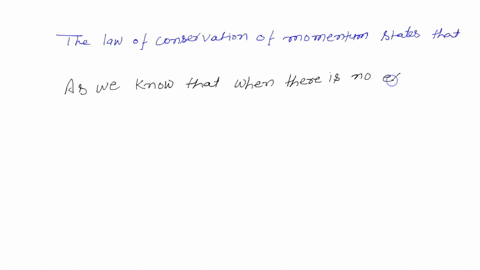 The law of conservation of momentum states that
As we know that when there is no ex